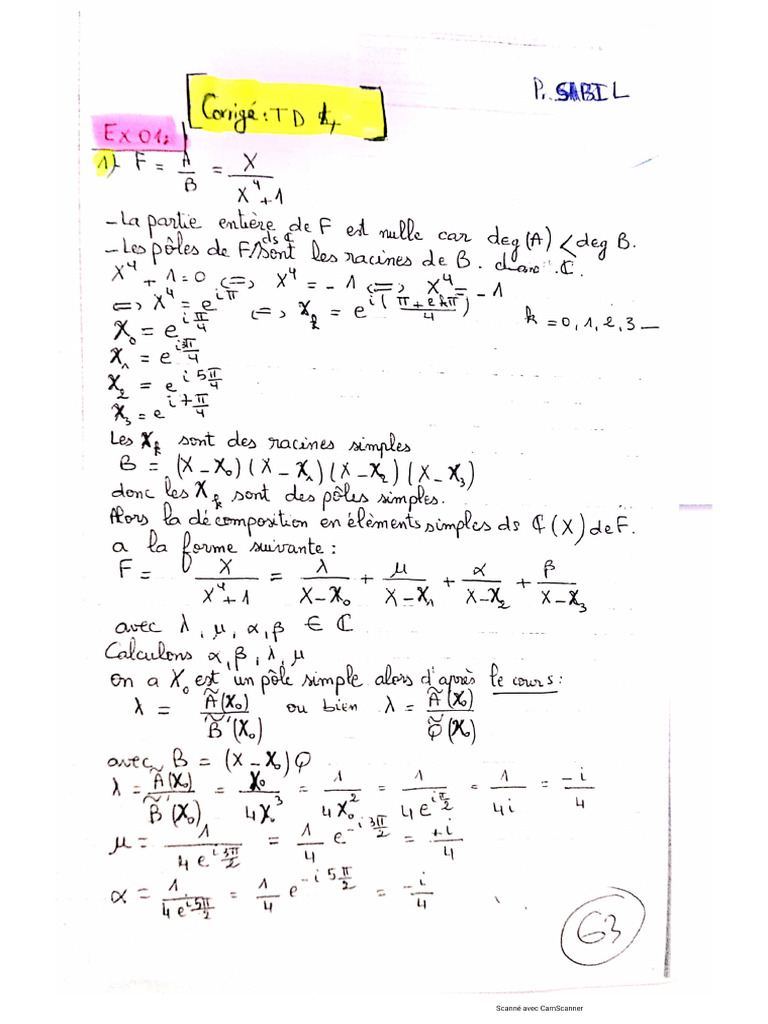 P. SABIL
Corrigé : TD 4
Ex 01:
1) - F = A/B = X/(X⁴+1)
- La partie entière de F est nulle car deg(A) < deg B.
- Les pôles de F ds ℂ sont les racines de B. dans ℂ.
X⁴ + 1 = 0 <=> X⁴ = -1 <=> X⁴ = -1
<=> X⁴ = e^{iπ} <=> X_k = e^{i(π+2kπ)/4} k = 0,1,2,3 —
X₀ = e^{iπ/4}
X₁ = e^{i3π/4}
X₂ = e^{i5π/4}
X₃ = e^{i7π/4}
Les X_k sont des racines simples
B = (X - X₀)(X - X₁)(X - X₂)(X - X₃)
donc les X_k sont des pôles simples.
Alors la décomposition en éléments simples ds ℂ(X) de F.
a la forme suivante :
F = X/(X⁴+1) = λ/(X-X₀) + μ/(X-X₁) + α/(X-X₂) + β/(X-X₃)
avec λ, μ, α, β ∈ ℂ
Calculons α, β, λ, μ
On a X₀ est un pôle simple alors d'après le cours :
λ = Ã(X₀)/B̃'(X₀) ou bien λ = Ã(X₀)/Q̃(X₀)
avec B = (X - X₀)Q
λ = Ã(X₀)/B̃'(X₀) = X₀/4X₀³ = 1/4X₀² = 1/4e^{iπ/2} = 1/4i = -i/4
μ = 1/4e^{i3π/2} = 1/4 e^{-i3π/2} = +i/4
α = 1/4e^{i5π/2} = 1/4 e^{-i5π/2} = -i/4
63
Scanné avec CamScanner